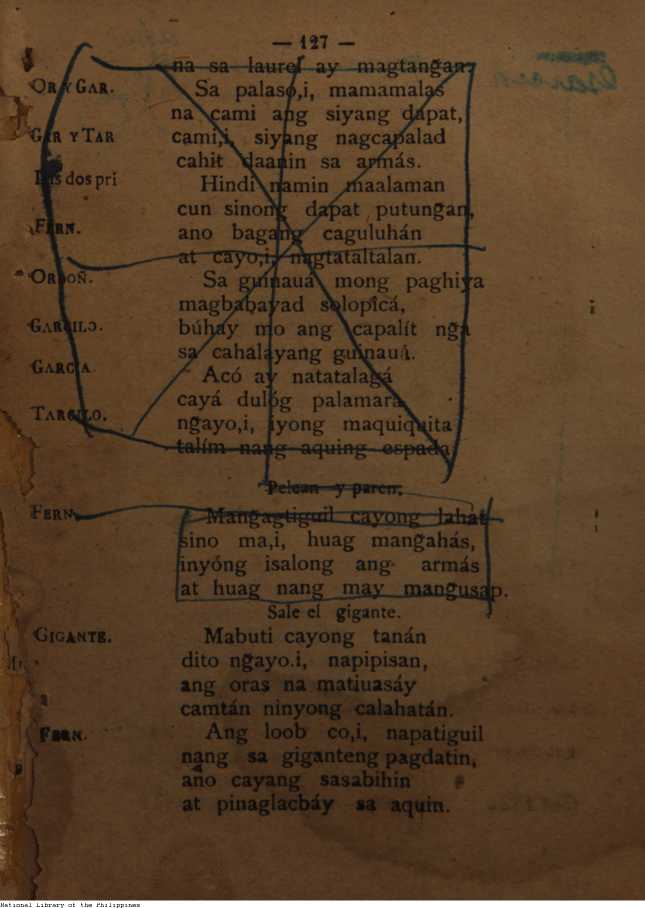 — 127 —
na sa laurel ay magtangan.
OR Y GAR. Sa palaso,i, mamamalas
na cami ang siyang dapat,
GAR Y TAR cami,i, siyang nagcapalad
cahit daanin sa armás.
Las dos pri Hindi namin maalaman
cun sinong dapat putungan,
FERN. ano bagang caguluhán
at cayo,i, nagtataltalan.
ORDOÑ. Sa guinauá mong paghiya
magbabayad solopicá,
GARCILO. búhay mo ang capalít ngã
sa cahalayang guinauá.
GARCIA. Acó ay natatalagá
cayá dulóg palamara
TARCILO. ngayo,i, iyong maquiquita
talím nang aquing espada
Pelean y paren.
FERN. Mangagtiguil cayong lahat
sino ma,i, huag mangahás,
inyóng isalong ang armás
at huag nang may mangusap.
Sale el gigante.
GIGANTE. Mabuti cayong tanán
dito ngayo.i, napipisan,
ang oras na matiuasáy
camtán ninyong calahatán.
FERN. Ang loob co,i, napatiguil
nang sa giganteng pagdatin,
ano cayang sasabihin
at pinaglacbáy sa aquin.
National Library of the Philippines